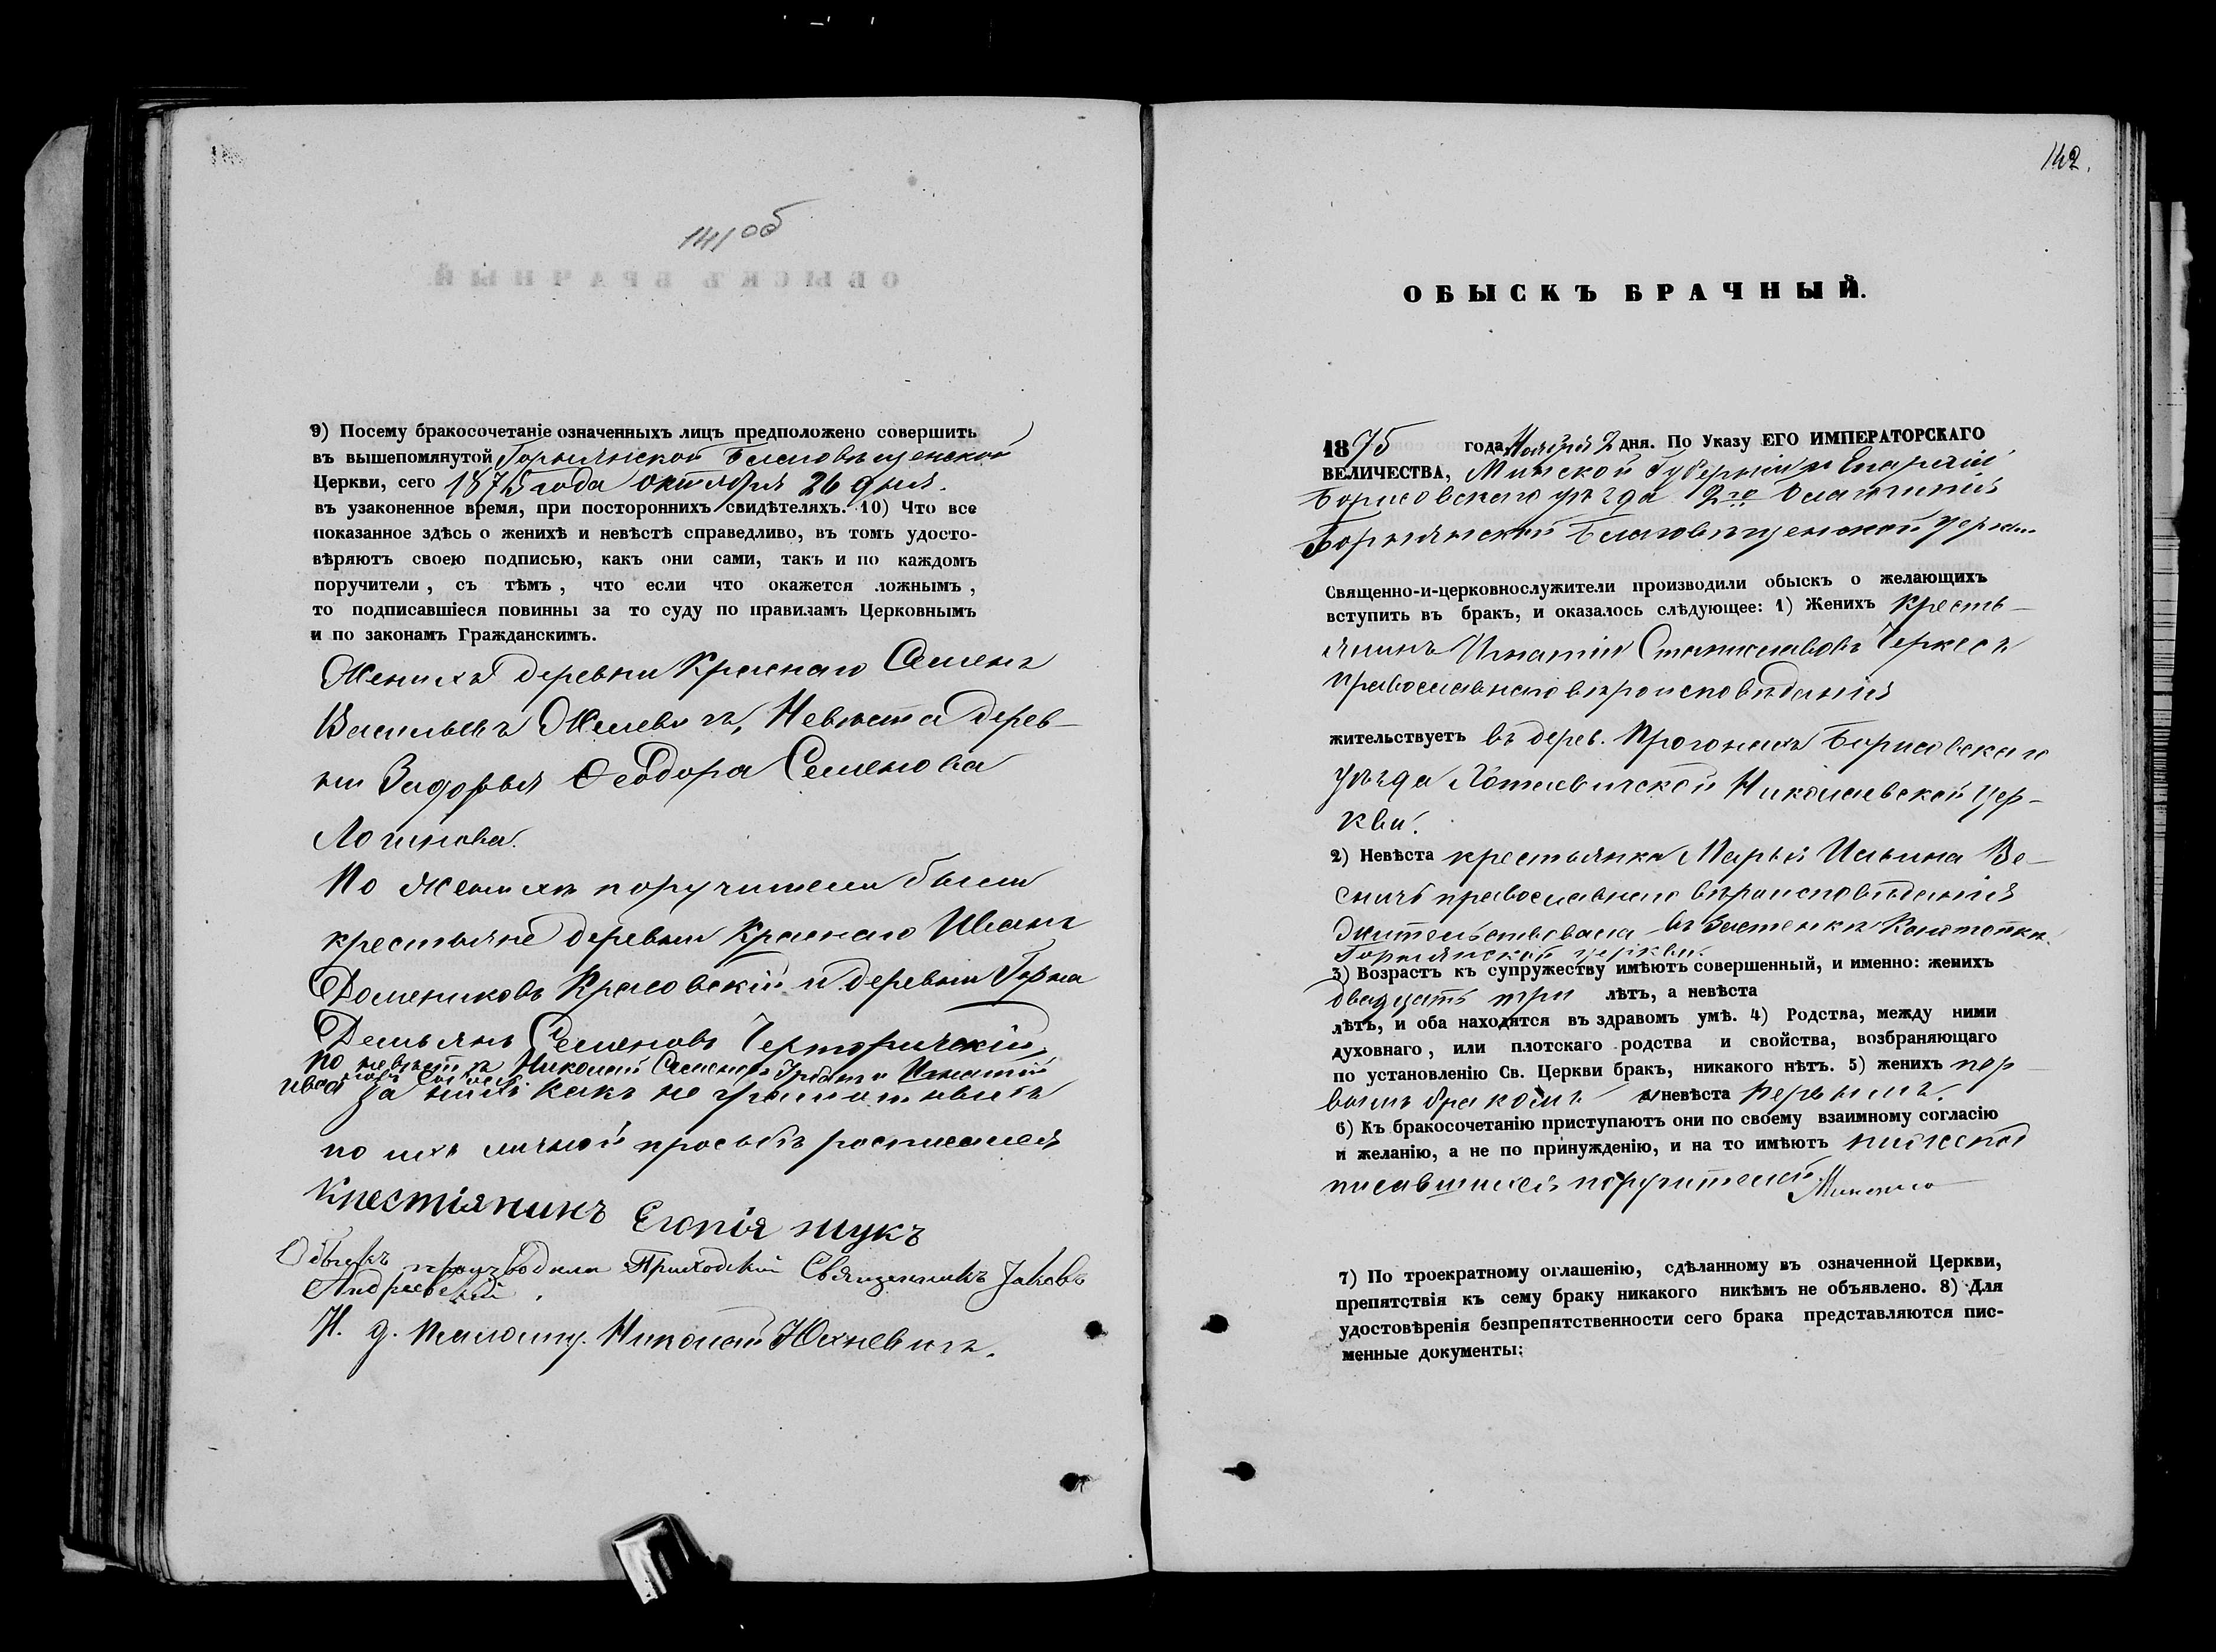 141 об
9) Посему бракосочетаніе означенныхъ лицъ предположено совершить
въ вышепомянутой Горнянской Благовѣщенской
Церкви, сего 1875 года октября 26 дня.
въ узаконенное время, при постороннихъ свидѣтеляхъ. 10) Что все
показанное здѣсь о женихѣ и невѣстѣ справедливо, въ томъ удосто-
вѣряютъ своею подписью, какъ они сами, такъ и по каждомъ
поручители, съ тѣмъ, что если что окажется ложнымъ,
то подписавшіеся повинны за то суду по правиламъ Церковнымъ
и по законамъ Гражданскимъ.
Женихъ деревни Краснаго Семенъ
Васильевъ Невѣста дерев-
ни Задорья Ѳеодора Семенова
Логинова.
По женихѣ поручители были
крестьяне деревни Краснаго Иванъ
Домениковъ Красовскій и деревни Горна
Демьянъ Семеновъ
по невѣстѣ Николай и Игнатій
за нихъ какъ не грамотныхъ
по ихъ личной просьбѣ росписался
крестіянинъ Егопія шукъ
Обыскъ производили Приходскій Священникъ Іаковъ
Андреевскій.
И. д. псаломщ. Николай Юхневичъ.
142.
ОБЫСКЪ БРАЧНЫЙ.
1875 года Ноября 2 дня. По Указу ЕГО ИМПЕРАТОРСКАГО
ВЕЛИЧЕСТВА, Минской Губерніи и Епархіи
Борисовскаго уѣзда 2го Благочинія
Горнянской Благовѣщенской церкви
Священно-и-церковнослужители производили обыскъ о желающихъ
вступить въ бракъ, и оказалось слѣдующее: 1) Женихъ Кресть-
янинъ Игнатій Станиславовъ Черкесъ
православнаго вѣроисповѣданія
жительствуетъ въ дерев. Прогонахъ Борисовскаго
уѣзда Хотаевичской Николаевской цер-
кви.
2) Невѣста крестьянка Марья Ильина Ве-
сничъ православнаго вѣроисповѣданія
жительствовала въ Застенкѣ
Горнянской церкви.
3) Возрастъ къ супружеству имѣютъ совершенный, и именно: женихъ
двадцать три лѣтъ, а невѣста
лѣтъ, и оба находятся въ здравомъ умѣ. 4) Родства, между ними
духовнаго, или плотскаго родства и свойства, возбраняющаго
по установленію Св. Церкви бракъ, никакого нѣтъ. 5) женихъ пер
вымъ бракомъ а невѣста первымъ.
6) Къ бракосочетанію приступаютъ они по своему взаимному согласію
и желанію, а не по принужденію, и на то имѣютъ нижепод
писавшихся поручителей
7) По троекратному оглашенію, сдѣланному въ означенной Церкви,
препятствія къ сему браку никакого никѣмъ не объявлено. 8) Для
удостовѣренія безпрепятственности сего брака представляются пис-
менные документы: